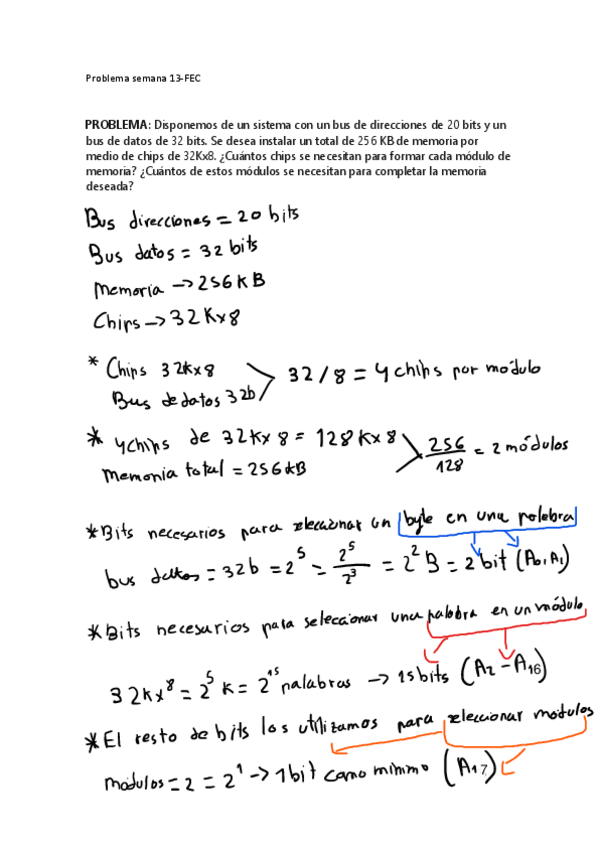 Problema semana 13-FEC
PROBLEMA: Disponemos de un sistema con un bus de direcciones de 20 bits y un
bus de datos de 32 bits. Se desea instalar un total de 256 KB de memoria por
medio de chips de 32Kx8. ¿Cuántos chips se necesitan para formar cada módulo de
memoria? ¿Cuántos de estos módulos se necesitan para completar la memoria
deseada?
Bus direcciones = 20 bits
Bus datos = 32 bits
Memoria → 256 KB
Chips → 32 Kx8
* Chips 32Kx8
Bus de datos 32b
32 / 8 = 4 chips por módulo
* 4 chips de 32Kx8 = 128Kx8
Memoria total = 256KB
256/128 = 2 módulos
* Bits necesarios para seleccionar un byte en una palabra
bus datos = 32b = 2^5 = 2^5/2^3 = 2^2 B = 2 bit (A0, A1)
* Bits necesarios para seleccionar una palabra en un módulo
32Kx8 = 2^5 K = 2^15 palabras → 15 bits (A2 - A16)
* El resto de bits los utilizamos para seleccionar módulos
módulos = 2 = 2^1 → 1 bit como mínimo (A17)